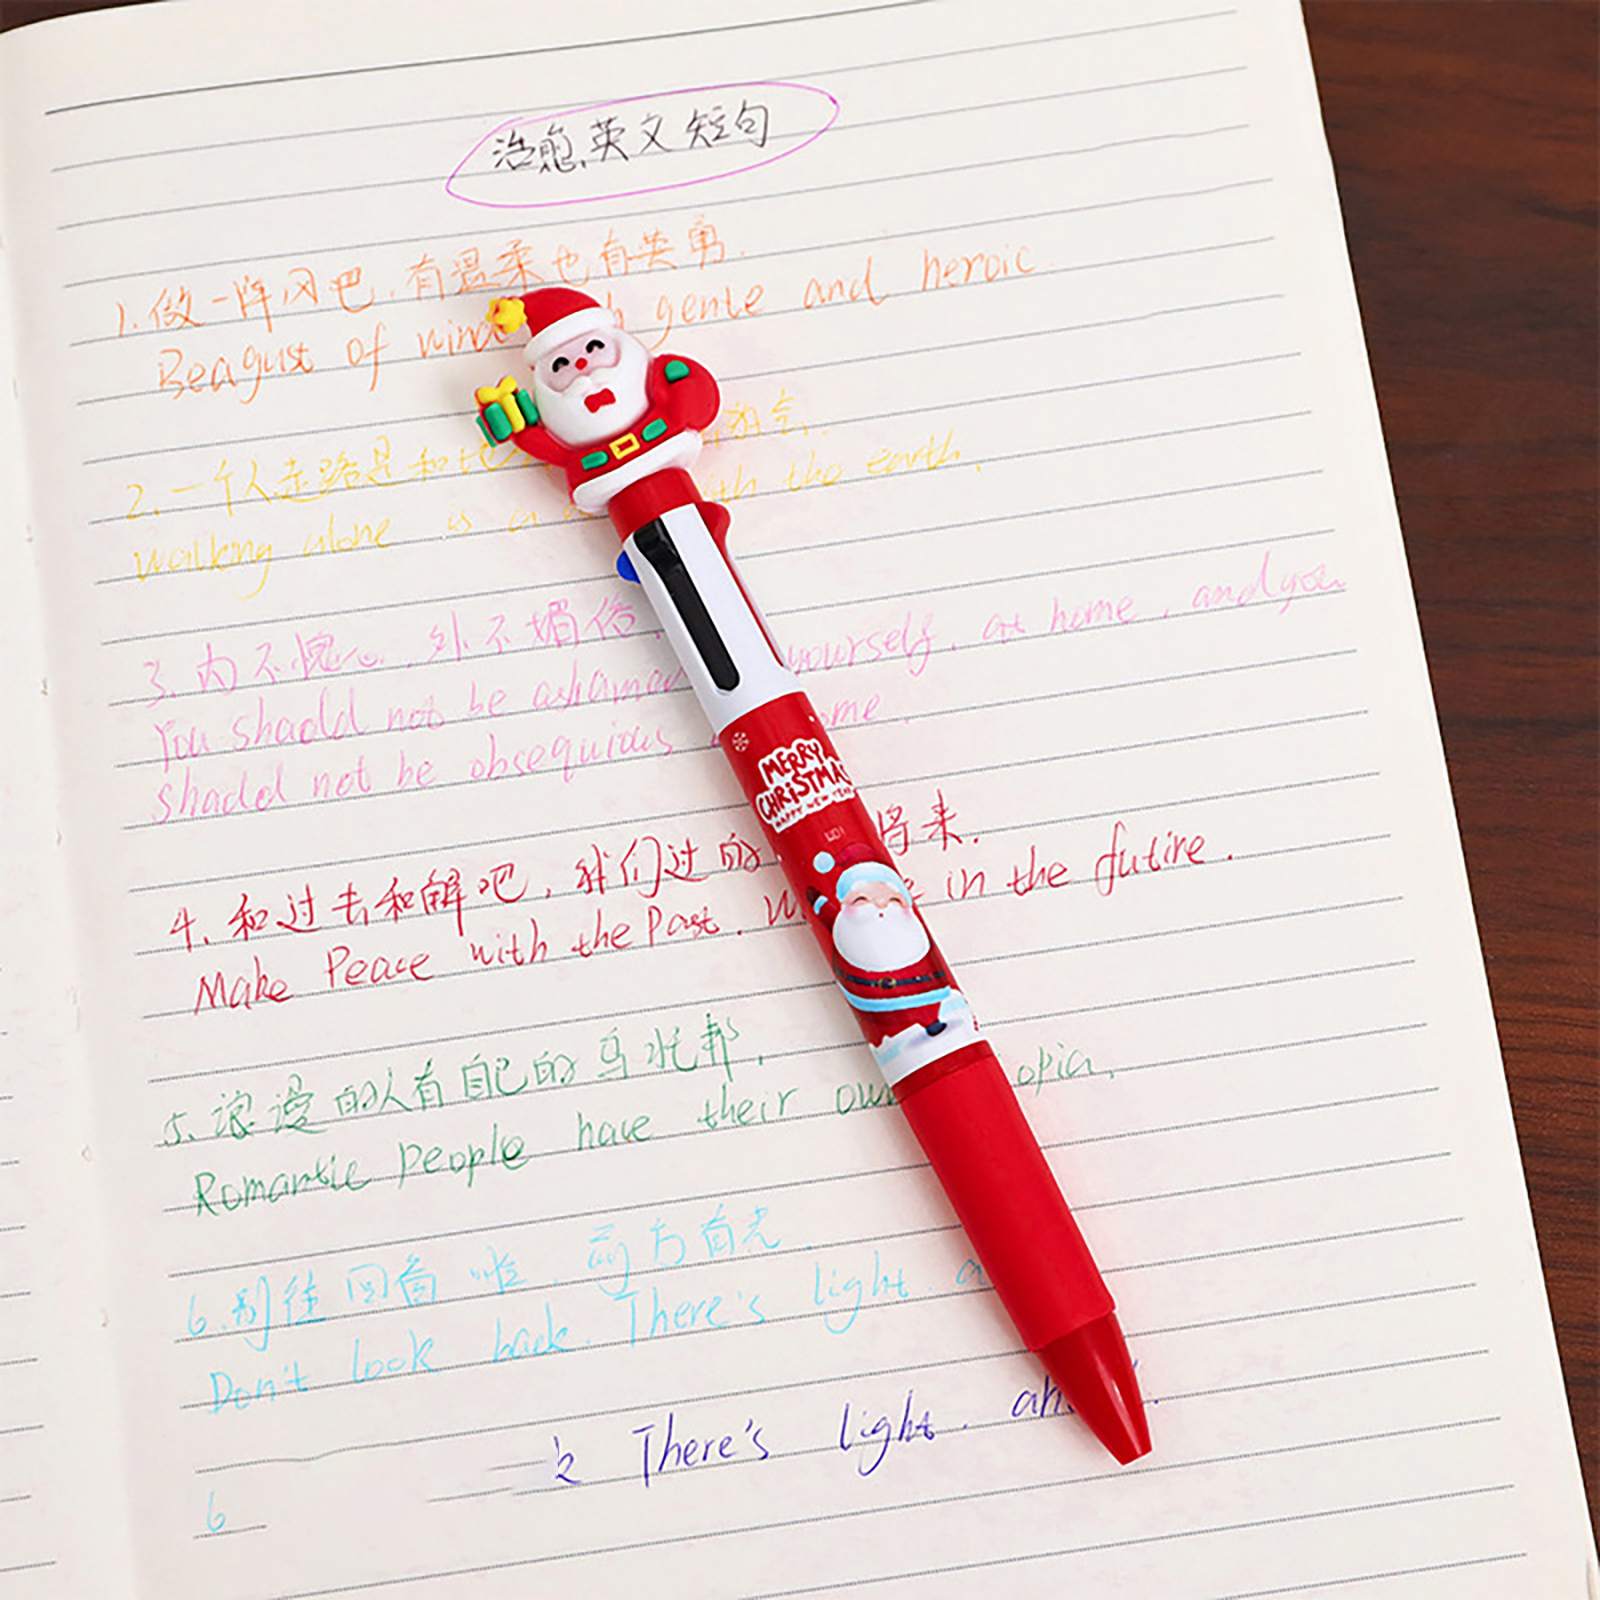 治愈英文短句
1.做一阵风吧,有温柔也有英勇.
Beagust of wind gentle and heroic
2.一个人走路是和
walking alone is a with the earth.
3.内不愧心,外不媚俗.
You shadd not be ashamed yourself, at home, and you
shadd not be obsequious
4.和过去和解吧,我们过的 将来.
Make Peace with the Past. in the futire.
5.浪漫的人有自己的乌托邦,
Romantic People have their own opia,
6.别往回看啦,前方有光.
Don't look back. There's light. a
There's light. an
6
MERRY
CHRISTMAS
HAPPY NEW YEAR